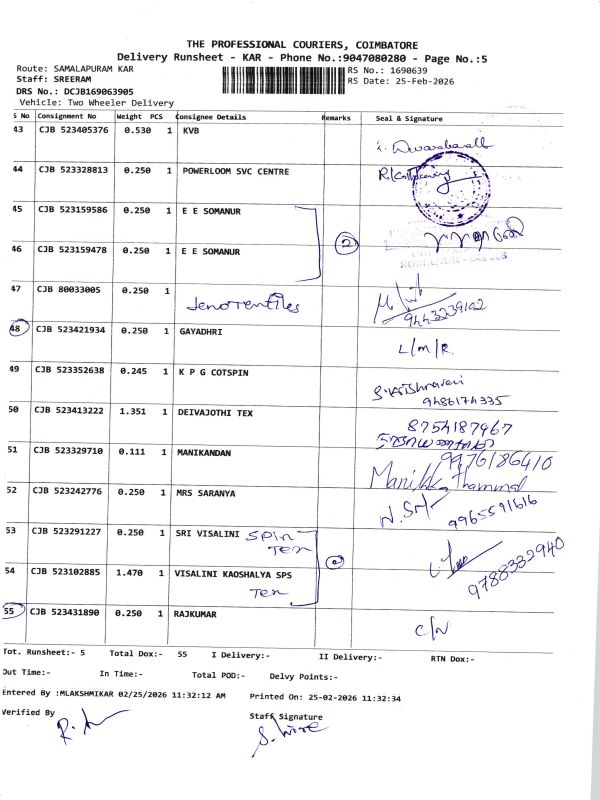 THE PROFESSIONAL COURIERS, COIMBATORE
Delivery Runsheet - KAR - Phone No.:9047080280 - Page No.:5
Route: SAMALAPURAM KAR RS No.: 1690639
Staff: SREERAM RS Date: 25-Feb-2026
DRS No.: DCJB169063905
Vehicle: Two Wheeler Delivery
S No Consignment No Weight PCS Consignee Details Remarks Seal & Signature
43 CJB 523405376 0.530 1 KVB
44 CJB 523328813 0.250 1 POWERLOOM SVC CENTRE
45 CJB 523159586 0.250 1 E E SOMANUR
2
46 CJB 523159478 0.250 1 E E SOMANUR
47 CJB 80033005 0.250 1
9443239102
48 CJB 523421934 0.250 1 GAYADHRI L/m/R
49 CJB 523352638 0.245 1 K P G COTSPIN
9486174335
50 CJB 523413222 1.351 1 DEIVAJOTHI TEX 8754187967
51 CJB 523329710 0.111 1 MANIKANDAN 9976186410
52 CJB 523242776 0.250 1 MRS SARANYA
9965591616
53 CJB 523291227 0.250 1 SRI VISALINI SPIN
TEX
54 CJB 523102885 1.470 1 VISALINI KAOSHALYA SPS 9788332940
TEX
55 CJB 523431890 0.250 1 RAJKUMAR C/N
Tot. Runsheet:- 5 Total Dox:- 55 I Delivery:- II Delivery:- RTN Dox:-
Out Time:- In Time:- Total POD:- Delvy Points:-
Entered By :MLAKSHMIKAR 02/25/2026 11:32:12 AM Printed On: 25-02-2026 11:32:34
Verified By Staff Signature